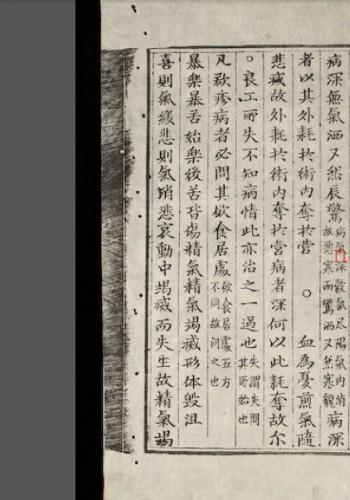 病深無氣洒又然辰驚病氣深穀氣尽陽氣內消故悪寒而驚洒又然寒貌病深
者以其外耗於術內奪於營○血為憂煎氣隨
悲减故外耗於術內奪於營病者深何以此耗奪故尔
○良工所失不知病情此亦治之一過也失謂失問其所始也
凡欲疹病者必問其飲食居處飲食居處五方不同故问之也
暴樂暴苦始樂後苦皆傷精氣精氣竭减形体毀沮
喜則氣緩悲則氣消悲哀動中竭减而失生故精氣竭